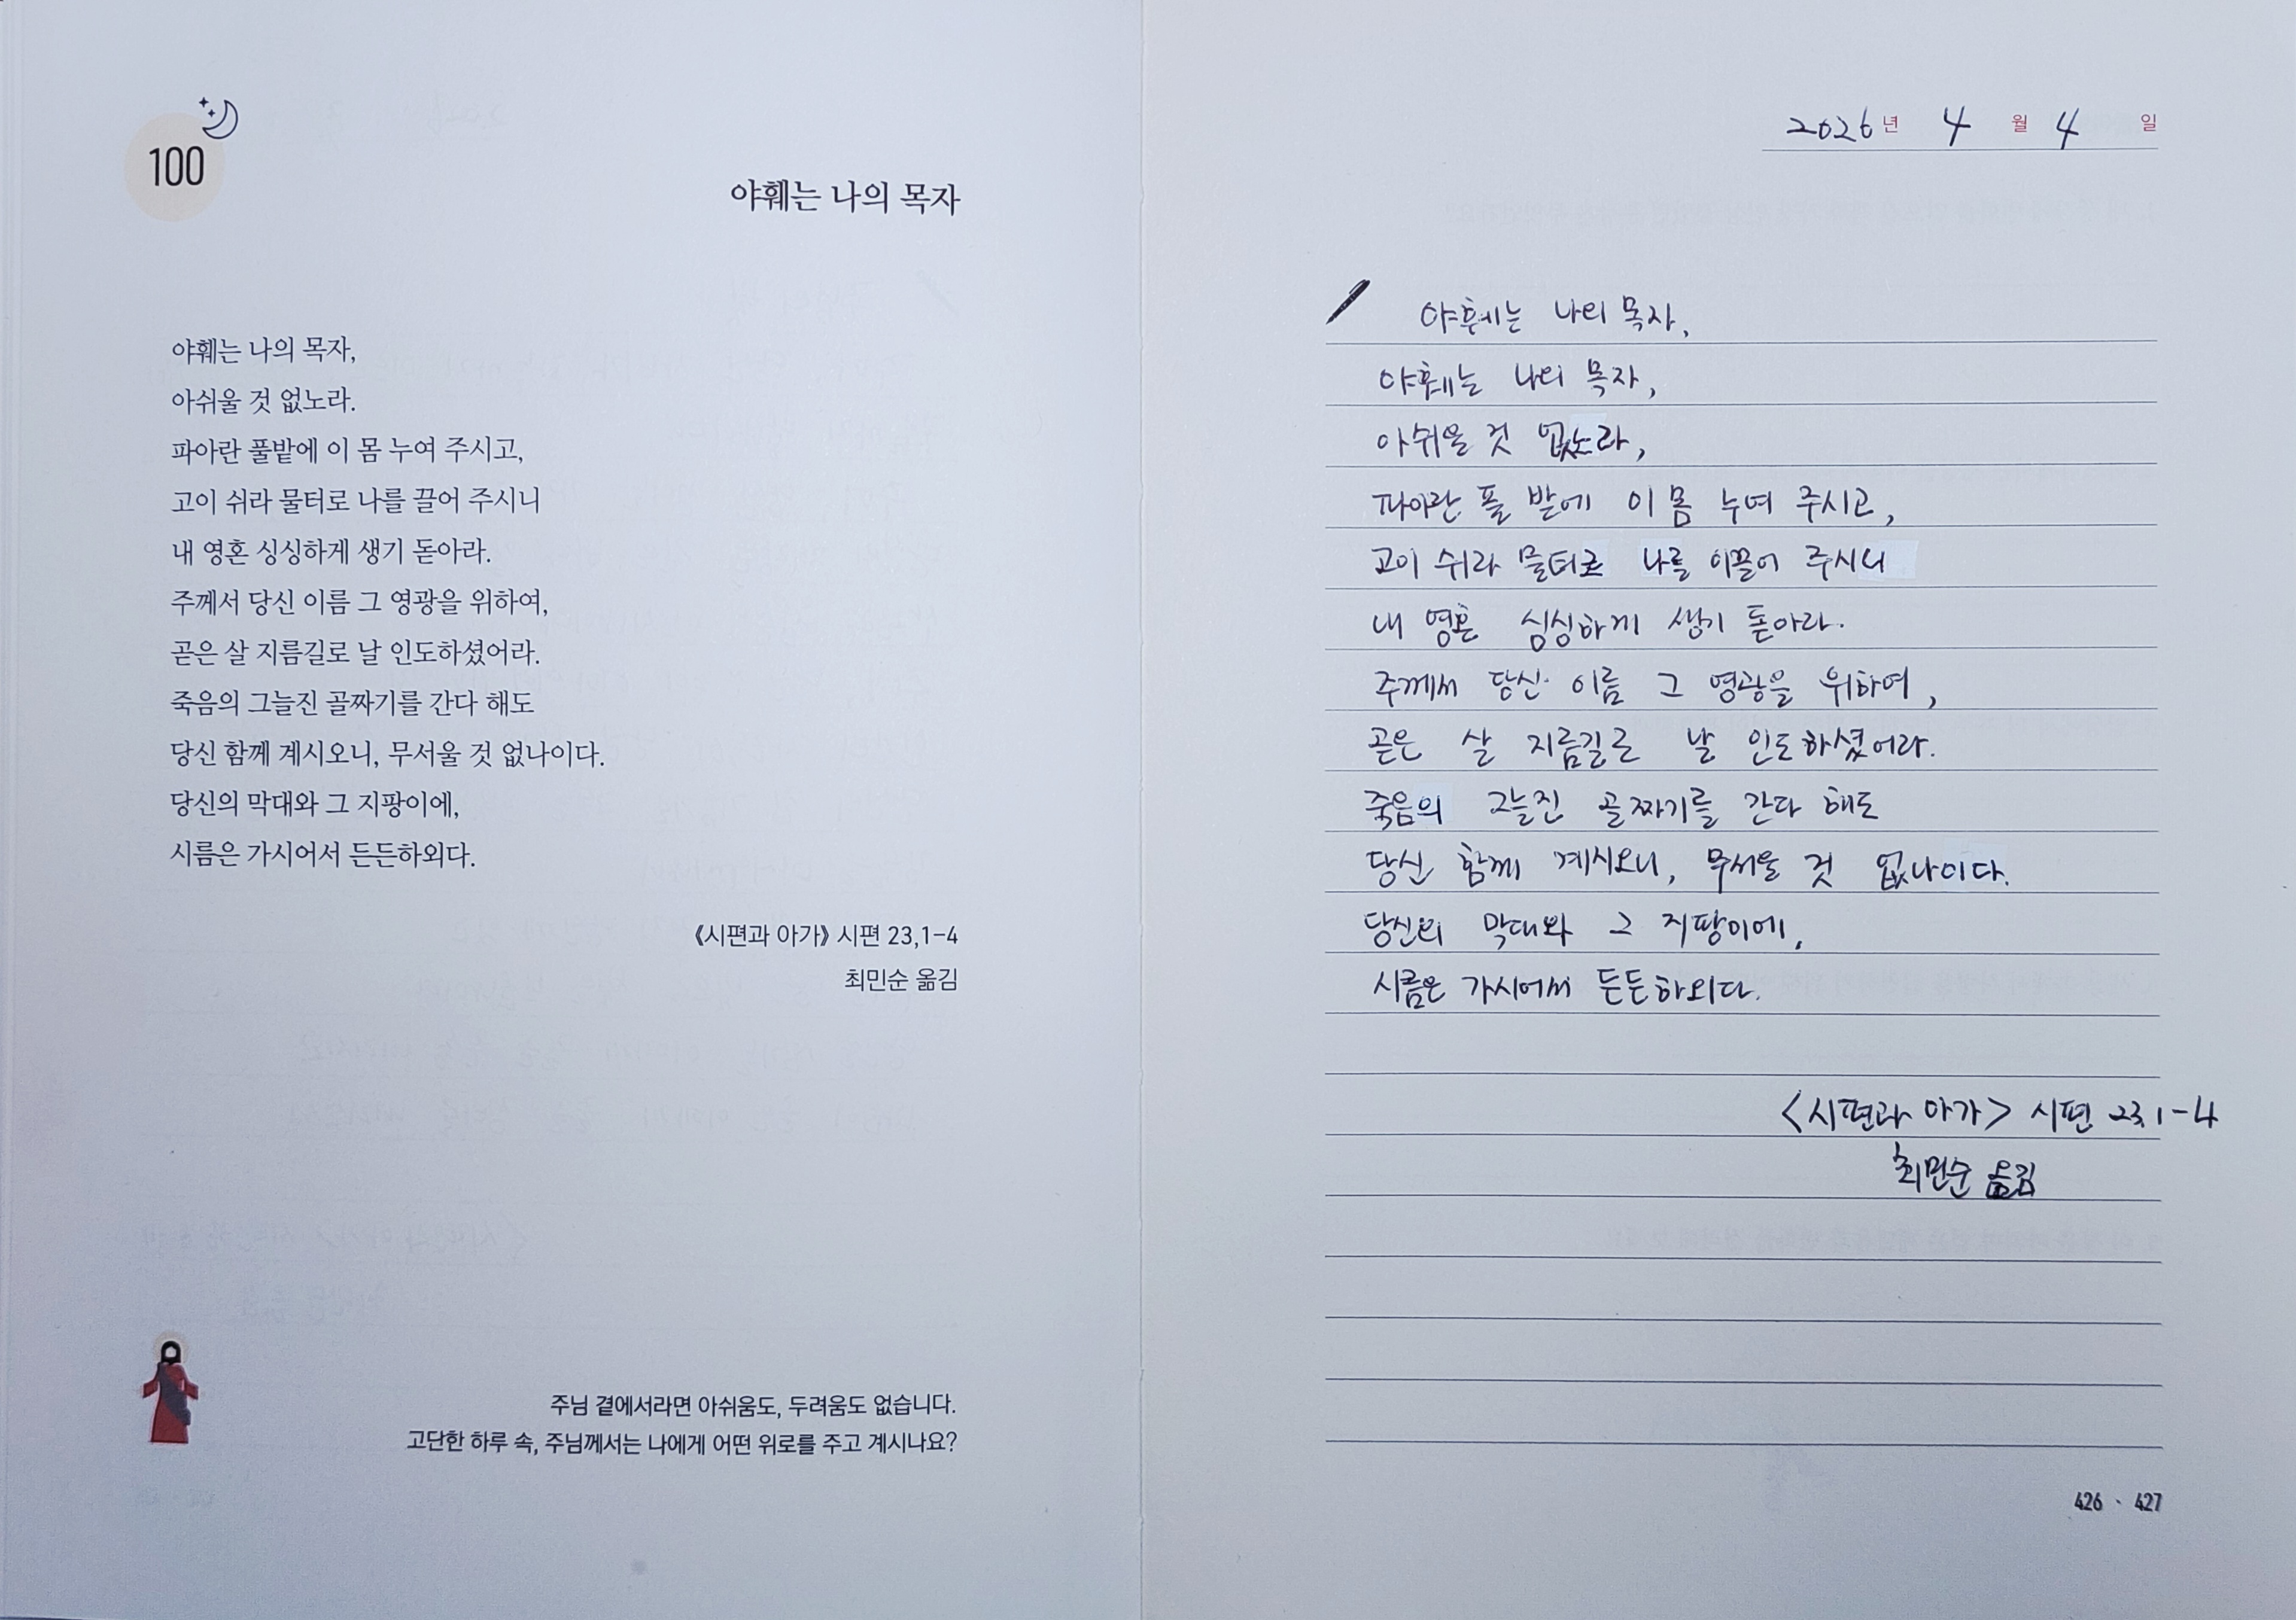 100
야훼는 나의 목자
야훼는 나의 목자,
아쉬울 것 없노라.
파아란 풀밭에 이 몸 누여 주시고,
고이 쉬라 물터로 나를 끌어 주시니
내 영혼 싱싱하게 생기 돋아라.
주께서 당신 이름 그 영광을 위하여,
곧은 살 지름길로 날 인도하셨어라.
죽음의 그늘진 골짜기를 간다 해도
당신 함께 계시오니, 무서울 것 없나이다.
당신의 막대와 그 지팡이에,
시름은 가시어서 든든하외다.
《시편과 아가》 시편 23,1-4
최민순 옮김
주님 곁에서라면 아쉬움도, 두려움도 없습니다.
고단한 하루 속, 주님께서는 나에게 어떤 위로를 주고 계시나요?
2026년 4월 4일
야훼는 나의 목자,
야훼는 나의 목자,
아쉬울 것 없노라,
파아란 풀 밭에 이 몸 누여 주시고,
고이 쉬라 물터로 나를 이끌어 주시니
내 영혼 싱싱하게 생기 돋아라.
주께서 당신 이름 그 영광을 위하여,
곧은 살 지름길로 날 인도하셨어라.
죽음의 그늘진 골짜기를 간다 해도
당신 함께 계시오니, 무서울 것 없나이다.
당신의 막대와 그 지팡이에,
시름은 가시어서 든든하외다.
<시편과 아가> 시편 23,1-4
최민순 옮김
426 · 427